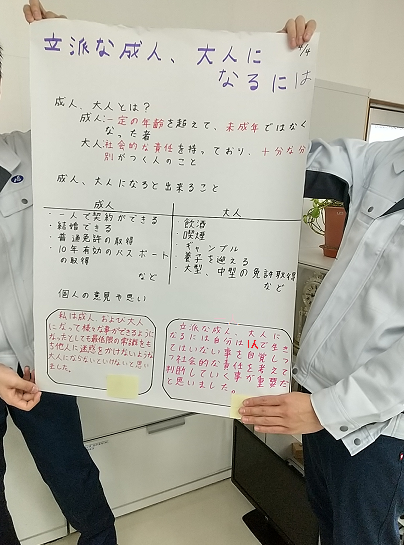 立派な成人、大人に
なるには
4/4
成人、大人とは？
成人：一定の年齢を超えて、未成年ではなく
なった者
大人：社会的な責任を持っており、十分な分
別がつく人のこと
成人、大人になると出来ること
成人
・一人で契約ができる
・結婚できる
・普通免許の取得
・10年有効のパスポート
の取得
など
大人
・飲酒
・喫煙
・ギャンブル
・養子を迎える
・大型、中型の免許取得
など
個人の意見や思い
私は成人、および大人
になって様々な事ができるように
なったとしても最低限の常識をも
ち他人に迷惑をかけないような
大人にならないといけないと思い
ました。
立派な成人、大人に
なるには自分は1人で生き
てはいない事を自覚し
て社会的な責任を考えて
判断していく事が重要だ
と思いました。